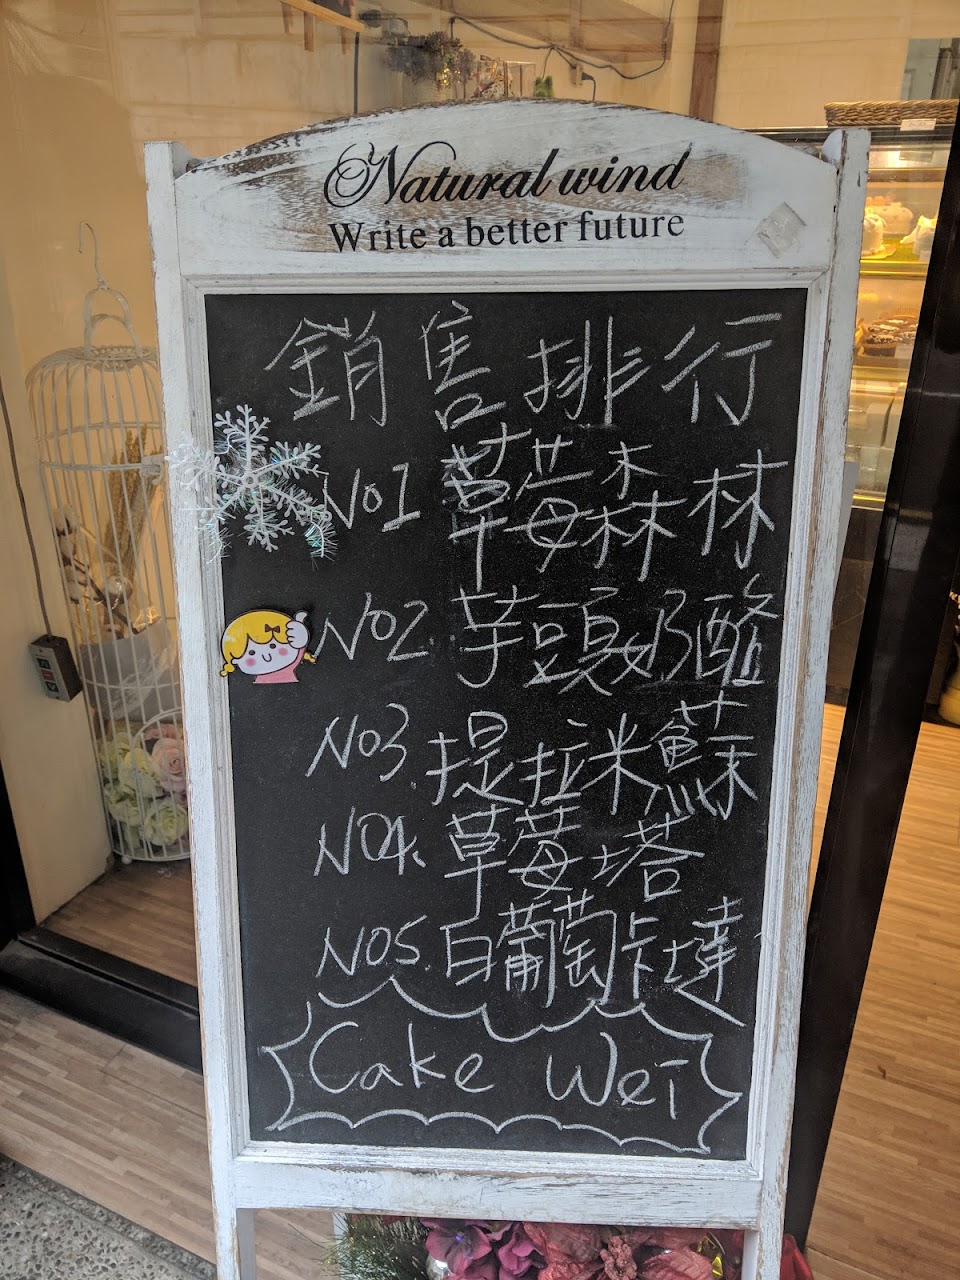 Natural wind
Write a better future
銷售排行
No1 草莓森林
No2. 芋頭奶酪
No3 提拉米蘇
No4. 草莓塔
No5. 白葡萄卡墶
Cake Wei